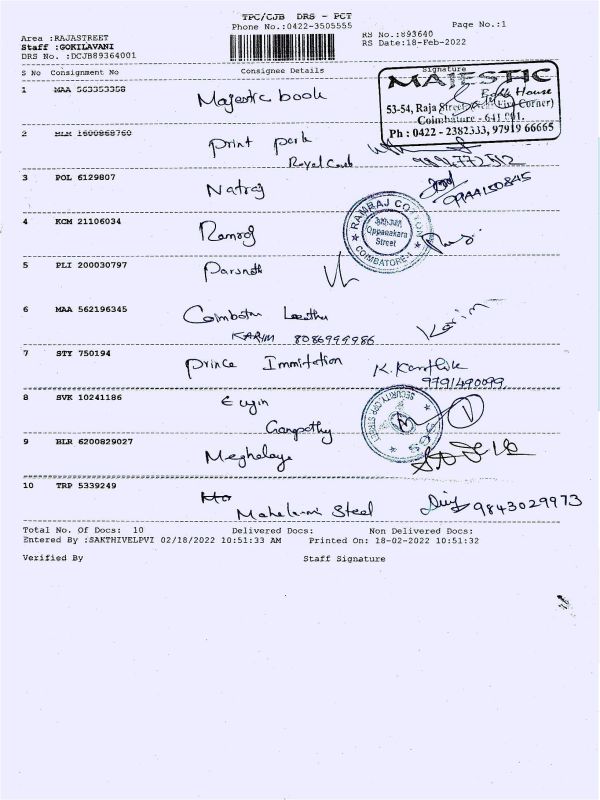 TPC/CJB DRS - PCT
Phone No.:0422-3505555
Page No.:1
Area :RAJASTREET
Staff :GOKILAVANI
DRS No. :DCJB89364001
RS No.:893640
RS Date:18-Feb-2022
S No Consignment No Consignee Details Signature
MAJESTIC
Book House
53-54, Raja Street, Five Corner)
Coimbatore - 641 001.
Ph : 0422 - 2382333, 97919 66665
1 MAA 563353358 Majestic book
2 BLR 1600868760 print park
Royal Comb
3 POL 6129807 Natraj
4 KCM 21106034 Ramraj
RAMRAJ COTTON
Oppanakara
Street
COIMBATORE-1
5 PLI 200030797 Parsnath
6 MAA 562196345 Coimbatu Leathu Karim
KARIM 8086999986
7 STY 750194 Prince Immitation K. Karthik
9791490099
8 SVK 10241186 Eugin
Ganpathy
SECURITY, OPP. STREET
9 BLR 6200829027 Meghalaya
10 TRP 5339249
Mahalaxmi Steel 9843029973
Total No. Of Docs: 10 Delivered Docs: Non Delivered Docs:
Entered By :SAKTHIVELPVI 02/18/2022 10:51:33 AM Printed On: 18-02-2022 10:51:32
Verified By Staff Signature